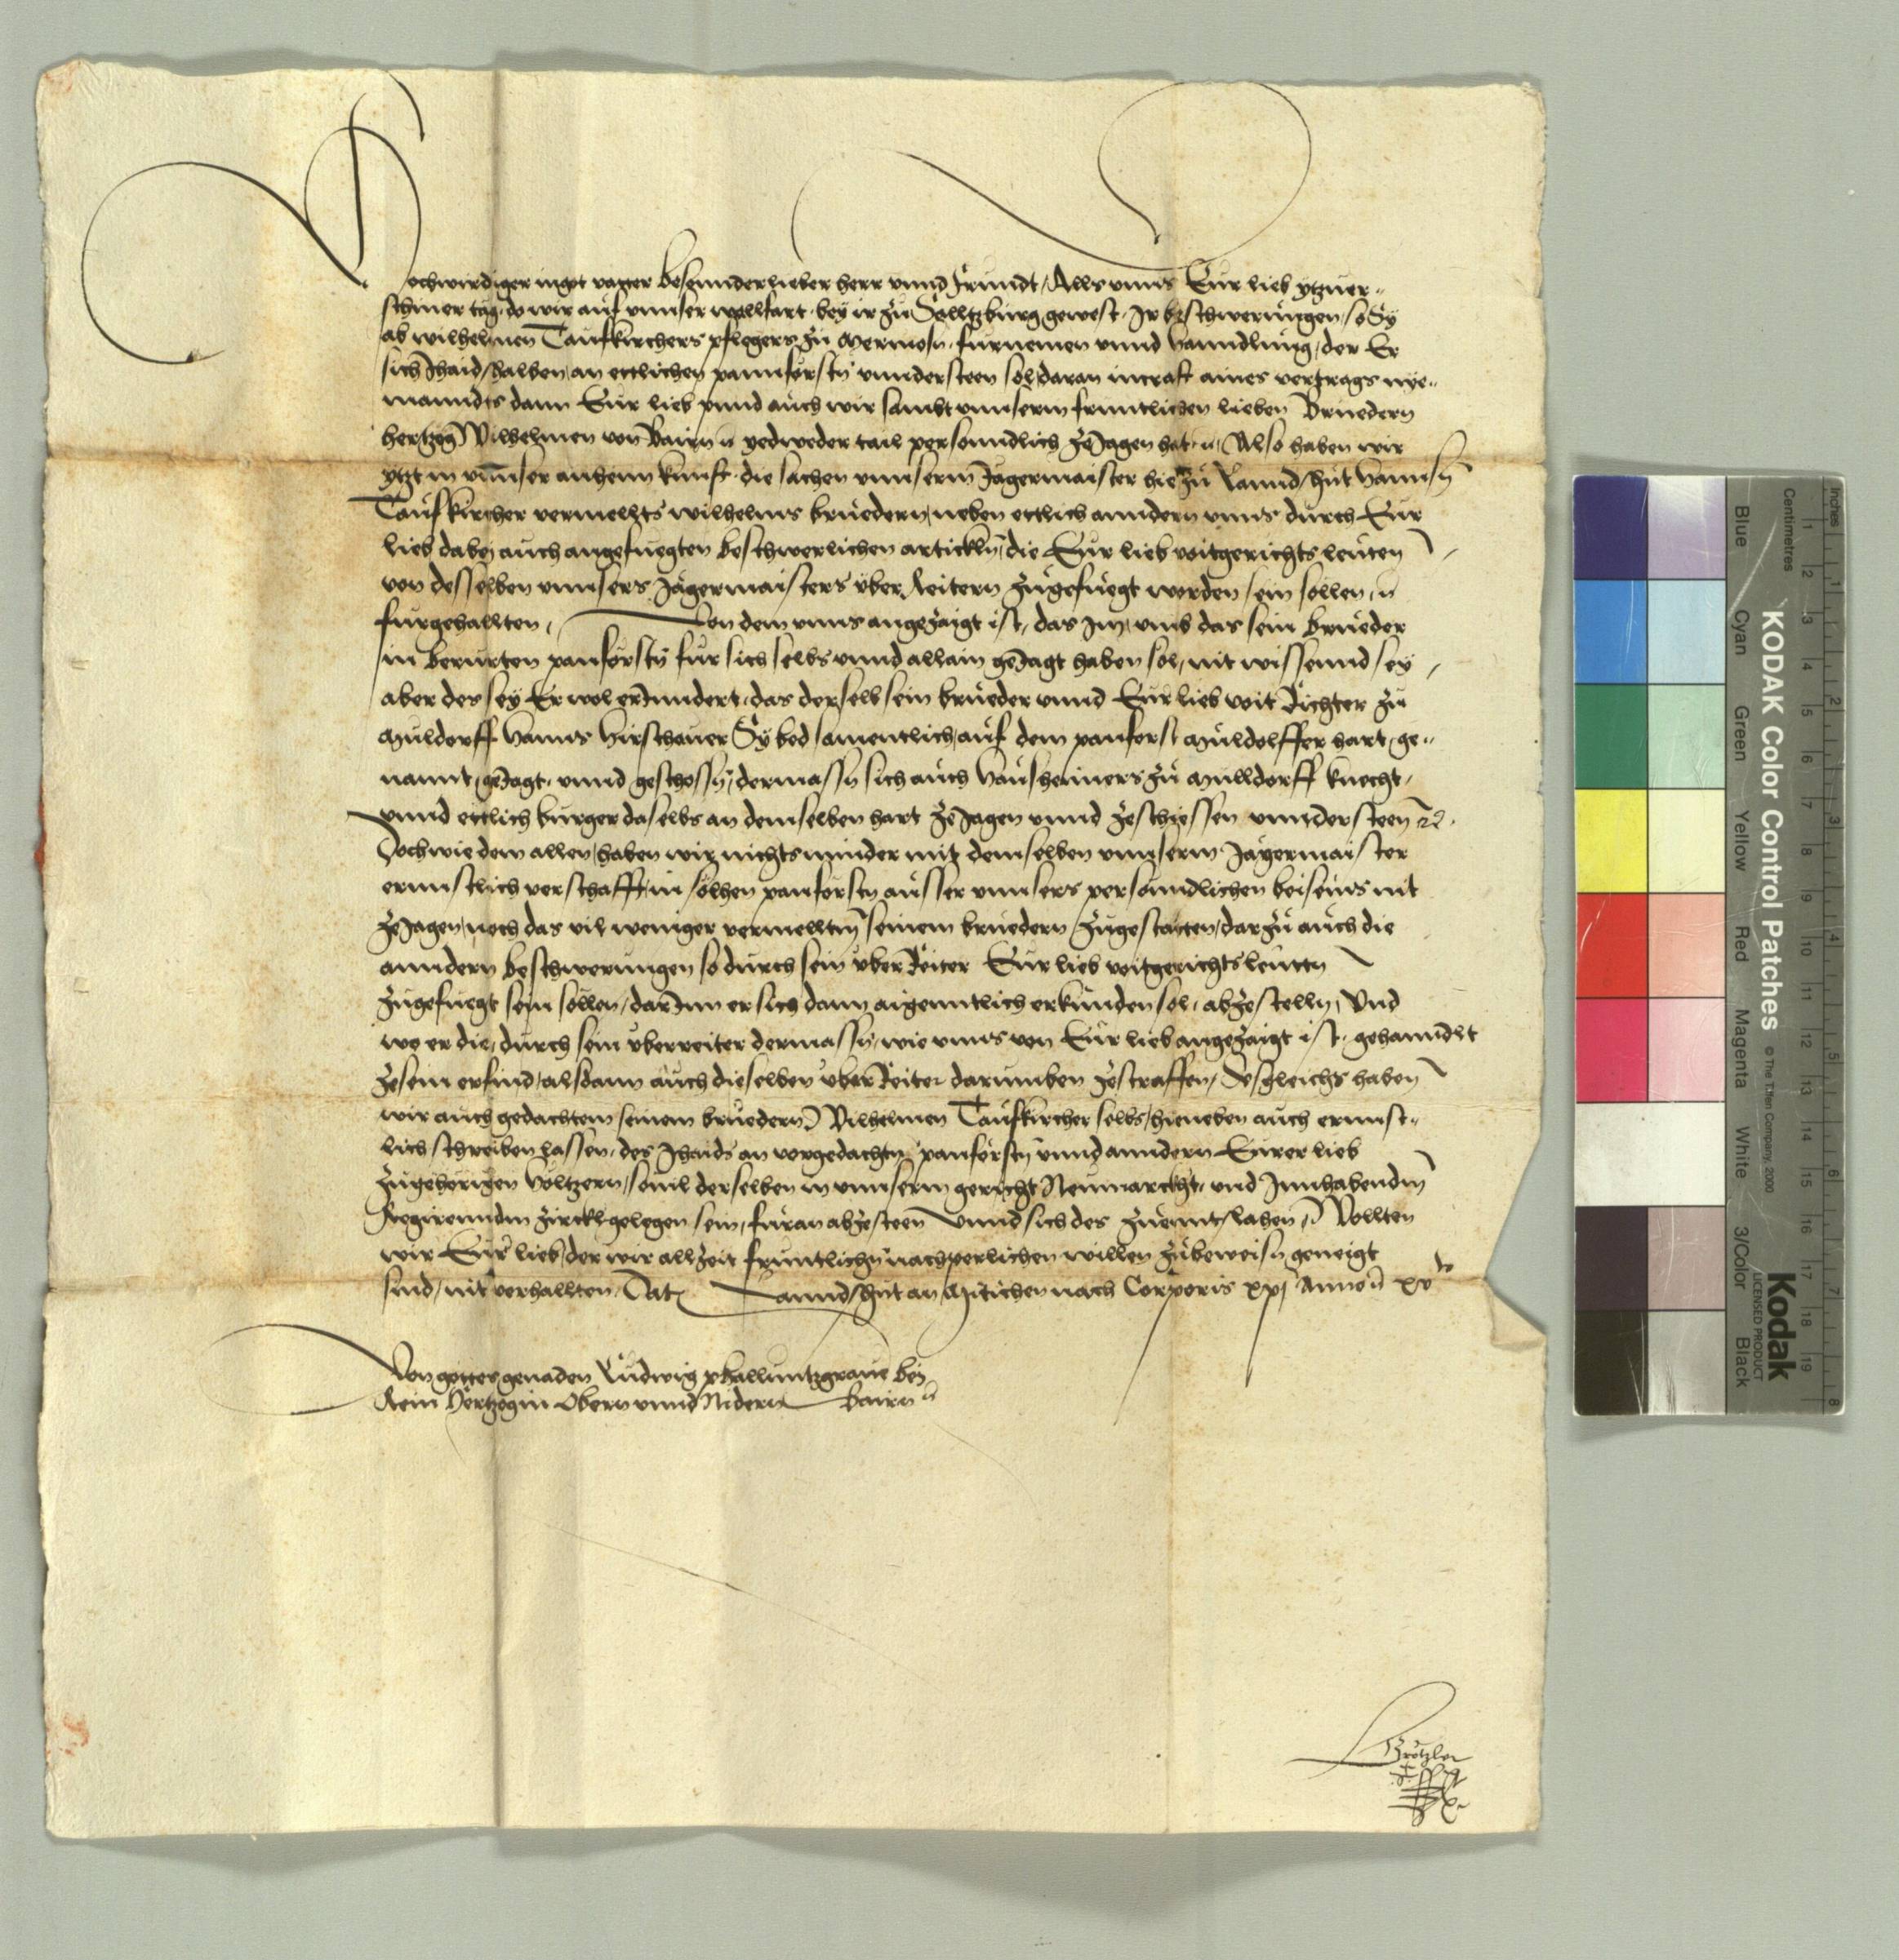 Hochwirdiger in got vatter besunnder lieber herr vnnd frundt, Alls vnns Eur lieb ytzuer-
schiner täg, do wir auf vnnser wallfart, bey ir zu Salltzburg gewest, Ir beschwerungen, so Sy
ab wilhelmen Taufkirchers pflegers zu Mermosn, furnemen vnnd hanndlung, der Er
sich Jhaid halben, an ettlichen pannforstn vnndersteen sol, daran incraft aines vertrags nye-
manndts dann Eur lieb vnnd auch wir sambt vnnserm fruntlichen lieben Bruedern
hertzog Wilhelmen von Bairn u yedweder tail personndlich zeJagen hat, u, Also haben wir
ytzt in vnnser anhenn kunft, die sachen vnnserm Jägermaister hie zu Lanndshut hannsn
Taufkircher vermellts wilhelms bruedern, neben ettlich anndern vnns durch Eur
lieb dabej auch angefuegten beschwerlichen artickln, die Eur lieb voitgerichts leuten
von desselben vnnsers Jägermaisters über Reitern zugefuegt worden sein sollen, u
furgehallten, Von dem vnns angezaigt ist, das Im, vmb das sein brueder
in berürten panforstn für sich selbs vnnd allain geJagt haben sol, nit wissennd sey,
aber des sey Er wol erJnndert, das derselb sein brueder vnnd Eur lieb voit Richter zu
Muldorff hanns hirschauer Sy bed samentlich, auf dem panforst Müldolffer hart, ge-
nannt, geJagt, vnnd geschossn, dermassn sich auch haushaimers zu Mülldorff knecht,
vnnd ettlich burger daselbs an demselben hart zeJagen vnnd zeschiessen vnndersteen rc.
Doch wie dem allen, haben wir nichts minder mit demselben vnnserm Jägermaister
ernnstlich verschafft, in solhen panforstn ausser vnnsers personndlichen beiseins nit
zeJagen, noch das vil weniger vermelltm seinem bruedern zugestatten, darzu auch die
anndern beschwerungen so durch sein über Reiter Eur lieb voitgerichts leuttn
zugefuegt sein sollen, darJnn er sich dann aigenntlich erkunden sol, abzestelln, Vnd
wo er die, durch sein überreiter dermassn, wie vnns von Eur lieb angezaigt ist, gehanndlt
zesein erfind, alsdann auch dieselben über Reiter darumben zestraffen, Desgleichs haben
wir auch gedachtem seinem bruedern Wilhelmen Taufkircher selbs, hieneben auch ernnst-
lich schreiben lassen, des Jhaids an vorgedachtn panforstn vnnd anndern Eurer lieb
zugehörigen höltzern, souil derselben in vnnserm gericht Neumarckht, vnd Innhabendm
Regirenndm zirckl gelegen sein, füran abzesteen Vnnd sich des zuenntslahen, u Wollten
wir Eur lieb, der wir allzeit fruntlichn nachperlichen willen zubeweisn geneigt
sind, nit verhallten, Dat Lanndshut an Mitichen nach Corporis xpi Anno u xvto
Von gottes genaden Ludwig phallnntzgraue bej
Rein Hertzog in Obern vnnd Nidern Bairn u